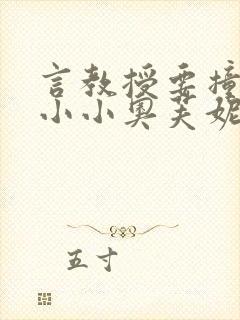 言教授要撞
小小奥芙妮
五寸